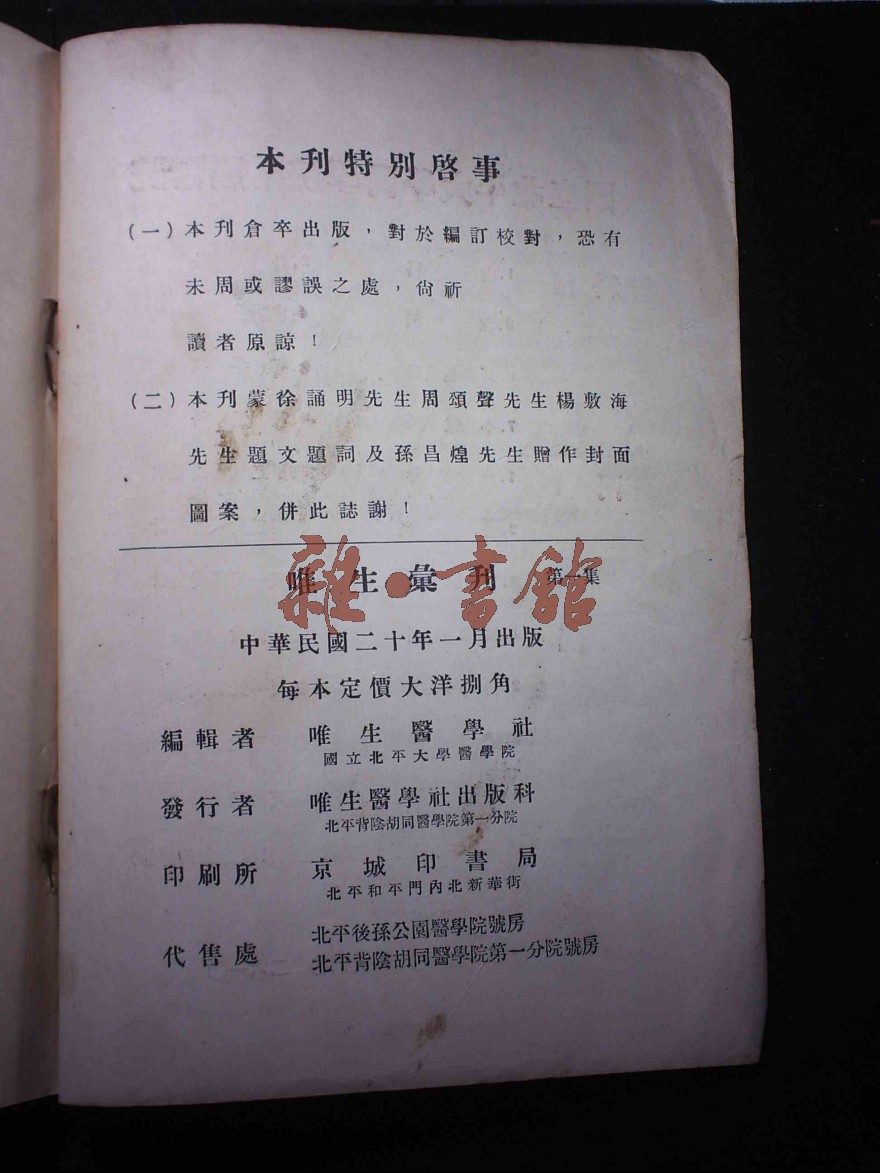 本刊特別啓事
(一)本刊倉卒出版，對於編訂校對，恐有
未周或謬誤之處，尙祈
讀者原諒！
(二)本刊蒙徐誦明先生周頌聲先生楊敷海
先生題文題詞及孫昌煌先生贈作封面
圖案，併此誌謝！
唯生彙刊 第一集
雜·書館
中華民國二十年一月出版
每本定價大洋捌角
編輯者 唯生醫學社
國立北平大學醫學院
發行者 唯生醫學社出版科
北平背陰胡同醫學院第一分院
印刷所 京城印書局
北平和平門內北新華街
代售處 北平後孫公園醫學院號房
北平背陰胡同醫學院第一分院號房